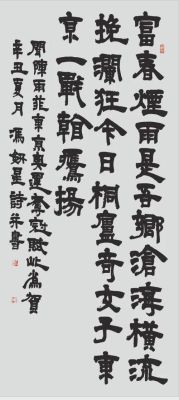 富春煙雨是吾鄉滄海橫流
挽瀾狂今日桐廬奇女子東
京一戰翰鷹揚
聞陳雨菲東京奧運奪冠賦此為賀
辛丑夏月馮劍星詩并書